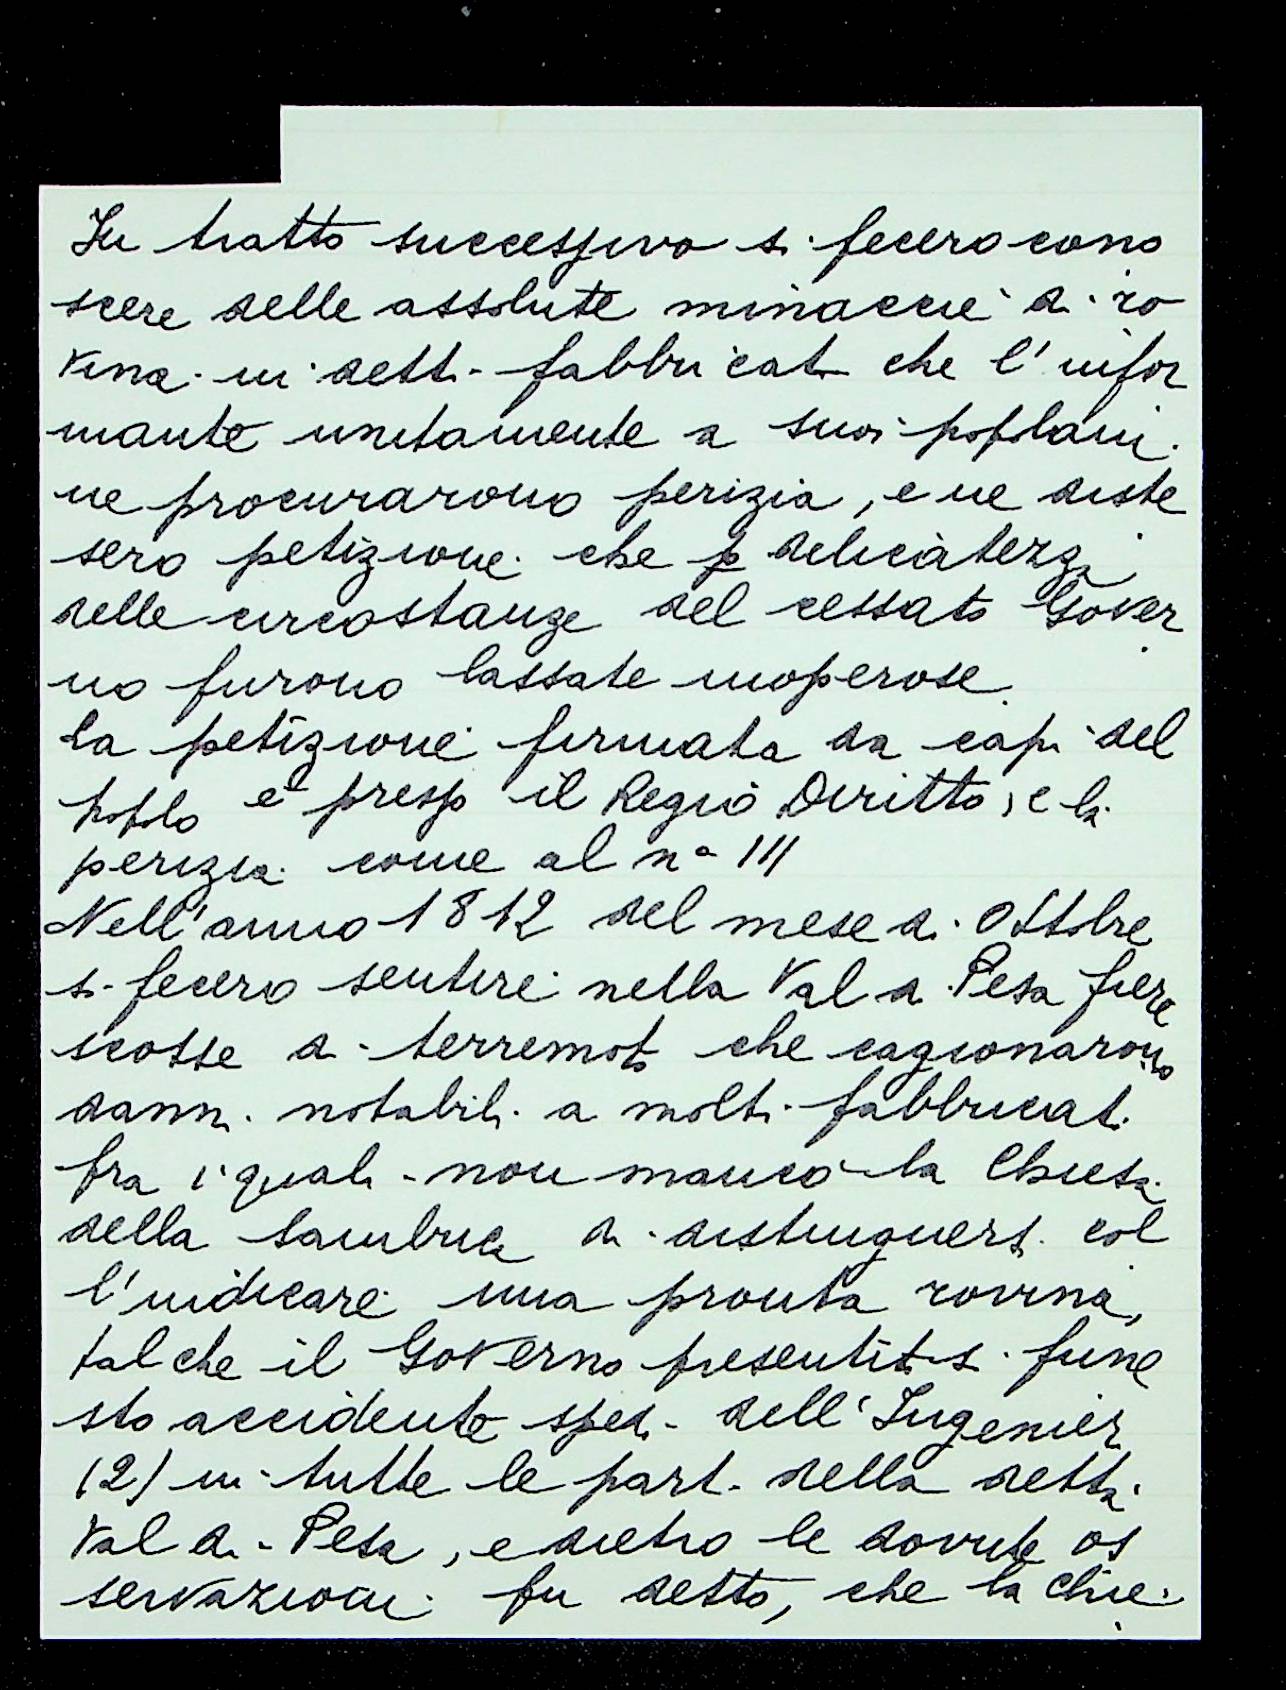 In tratto successivo si fecero cono
scere delle assolute minaccie di ro
vina in detti fabbricati che l'infor
mante unitamente a suoi popolani
ne procurarono perizia, e ne diste
sero petizione che p delicatezza
delle circostanze del cessato Gover
no furono lassate inoperose
La petizione firmata da capi del
popolo è presso il Regio Diritto, e la
perizia come al n° 111
Nell'anno 1812 del mese di Ottobre
si fecero sentire nella Val di Pesa fiere
scosse di terremoto che cagionarono
danni notabili a molti fabbricati
fra i quali non mancò la Chiesa
della Sambuca di distinguersi col
l'indicare una pronta rovina,
tal che il Governo presentitisi fune
sto accidente spedì dell'Ingenier
(2) in tutte le parti della detta
Val di Pesa, e dietro le dovute os
servazioni fu detto, che la chie